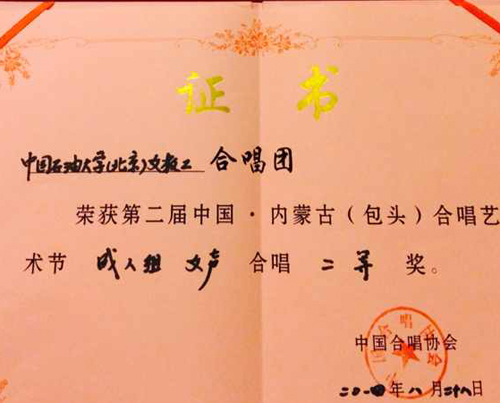 证书
中国石油大学(北京)女教工 合唱团
荣获第二届中国·内蒙古(包头)合唱艺
术节 成人组 女声 合唱 二等 奖。
中国合唱协会
二〇一四年八月二十八日